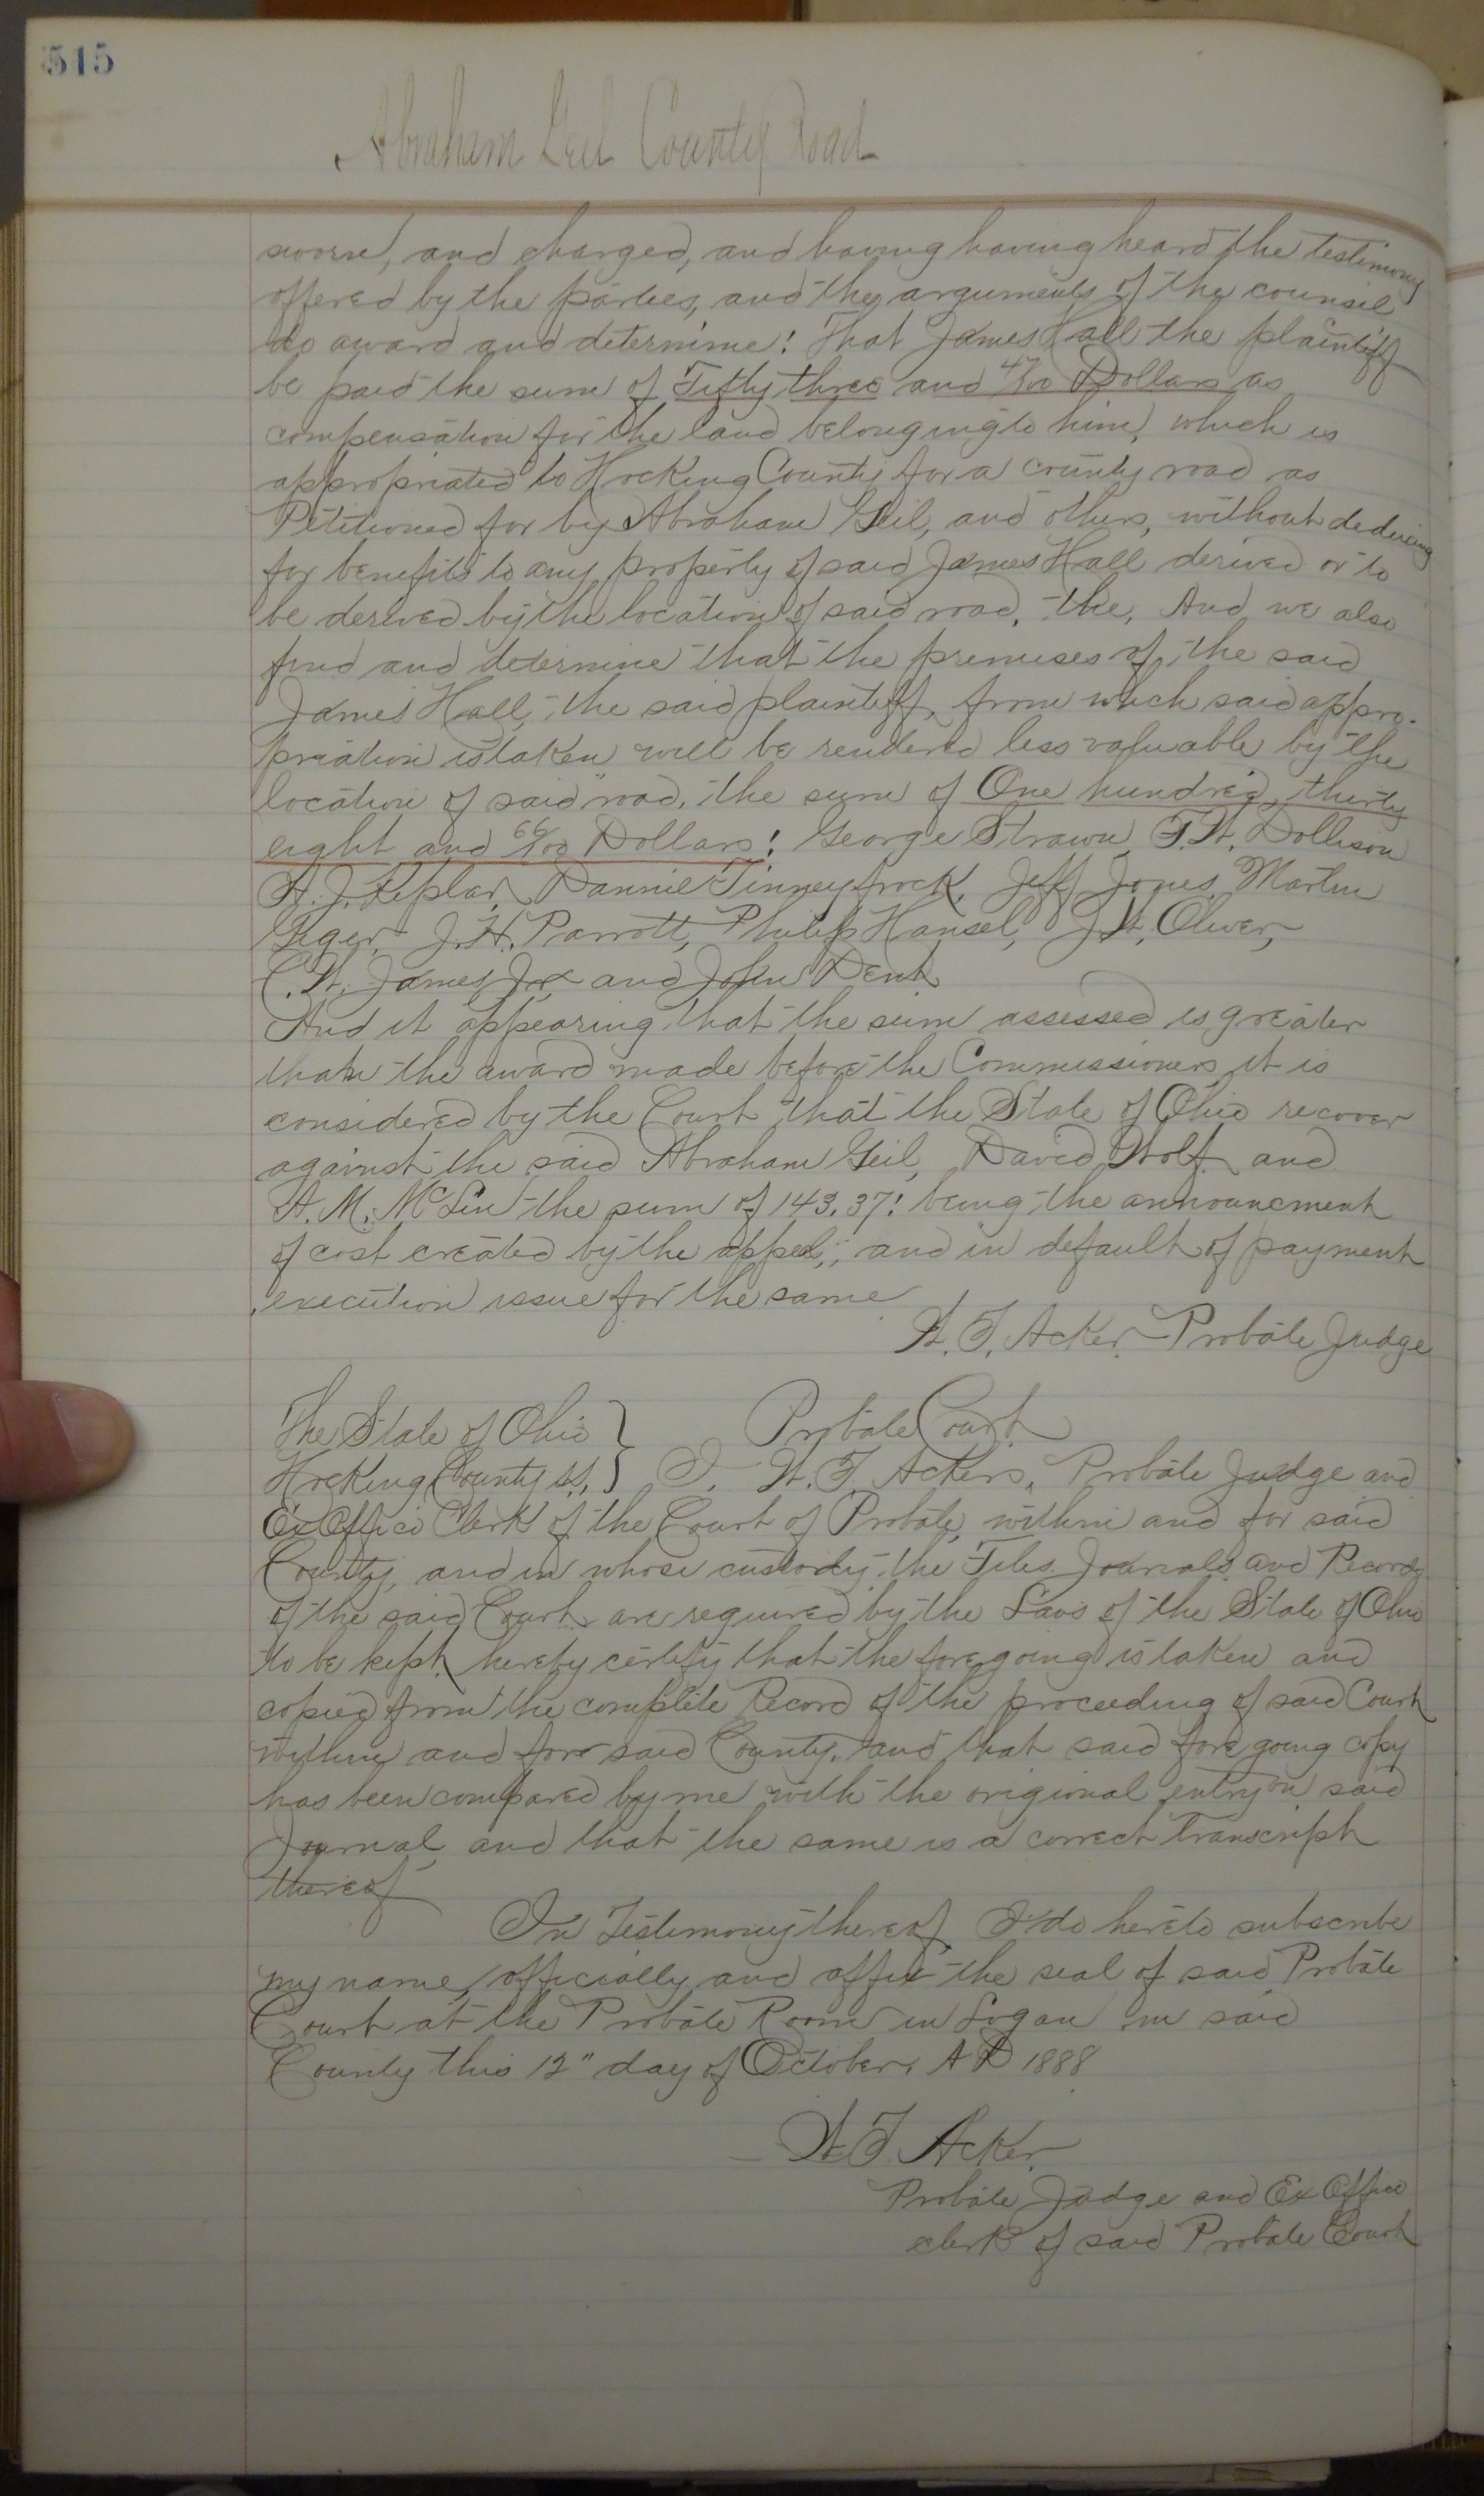 515
Abraham Geil County Road
sworn, and charged, and having having heard the testimony
offered by the parties, and the arguments of the counsel
do award and determine! That James Hall the plaintiff
be paid the sum of Fifty three and 47/100 Dollars as
compensation for the land belonging to him, which is
appropriated to Hocking County for a county road as
Petitioned for by Abraham Geil, and others, without deducing
for benefits to any property of said James Hall derived or to
be derived by the location of said road, the, And we also
find and determine that the premises of the said
James Hall, the said plaintiff, from which said appro-
priation is taken will be rendered less valuable by the
location of said road, the sum of One hundred, thirty
eight and 66/100 Dollars! George Strawn, F. W. Dollison
A. J. Keplar, Dannie Tinneyfrock, Jeff Jones, Martin
Geger, J. H. Parrott, Philip Hansel, J. W. Oliver,
C. W. James Jr and John Dent
And it appearing that the sum assessed is greater
than the award made before the Commissioners, it is
considered by the Court that the State of Ohio recover
against the said Abraham Geil, David Wolf and
A. M. McLin the sum of 143.37! being the announcment
of cost created by the appeal, and in default of payment
execution issue for the same
W. F. Acker Probate Judge
The State of Ohio } Probate Court
Hocking County ss, } I, W. F. Ackers, Probate Judge and
Ex Office Clerk of the Court of Probate, within and for said
County, and in whose custody the Files Journals and Records
of the said Court are required by the Laws of the State of Ohio
to be kept, hereby certify that the foregoing is taken and
copied from the complete Record of the proceeding of said Court
within and for said County, and that said foregoing copy
has been compared by me with the origional entry on said
Journal, and that the same is a correct Transcript
thereof
In Testimony thereof, I do hereto subscribe
my name, officially and affix the seal of said Probate
Court at the Probate Room in Logan in said
County this 12" day of October, A D 1888
W F Acker
Probate Judge and Ex Office
clerk of said Probate Court